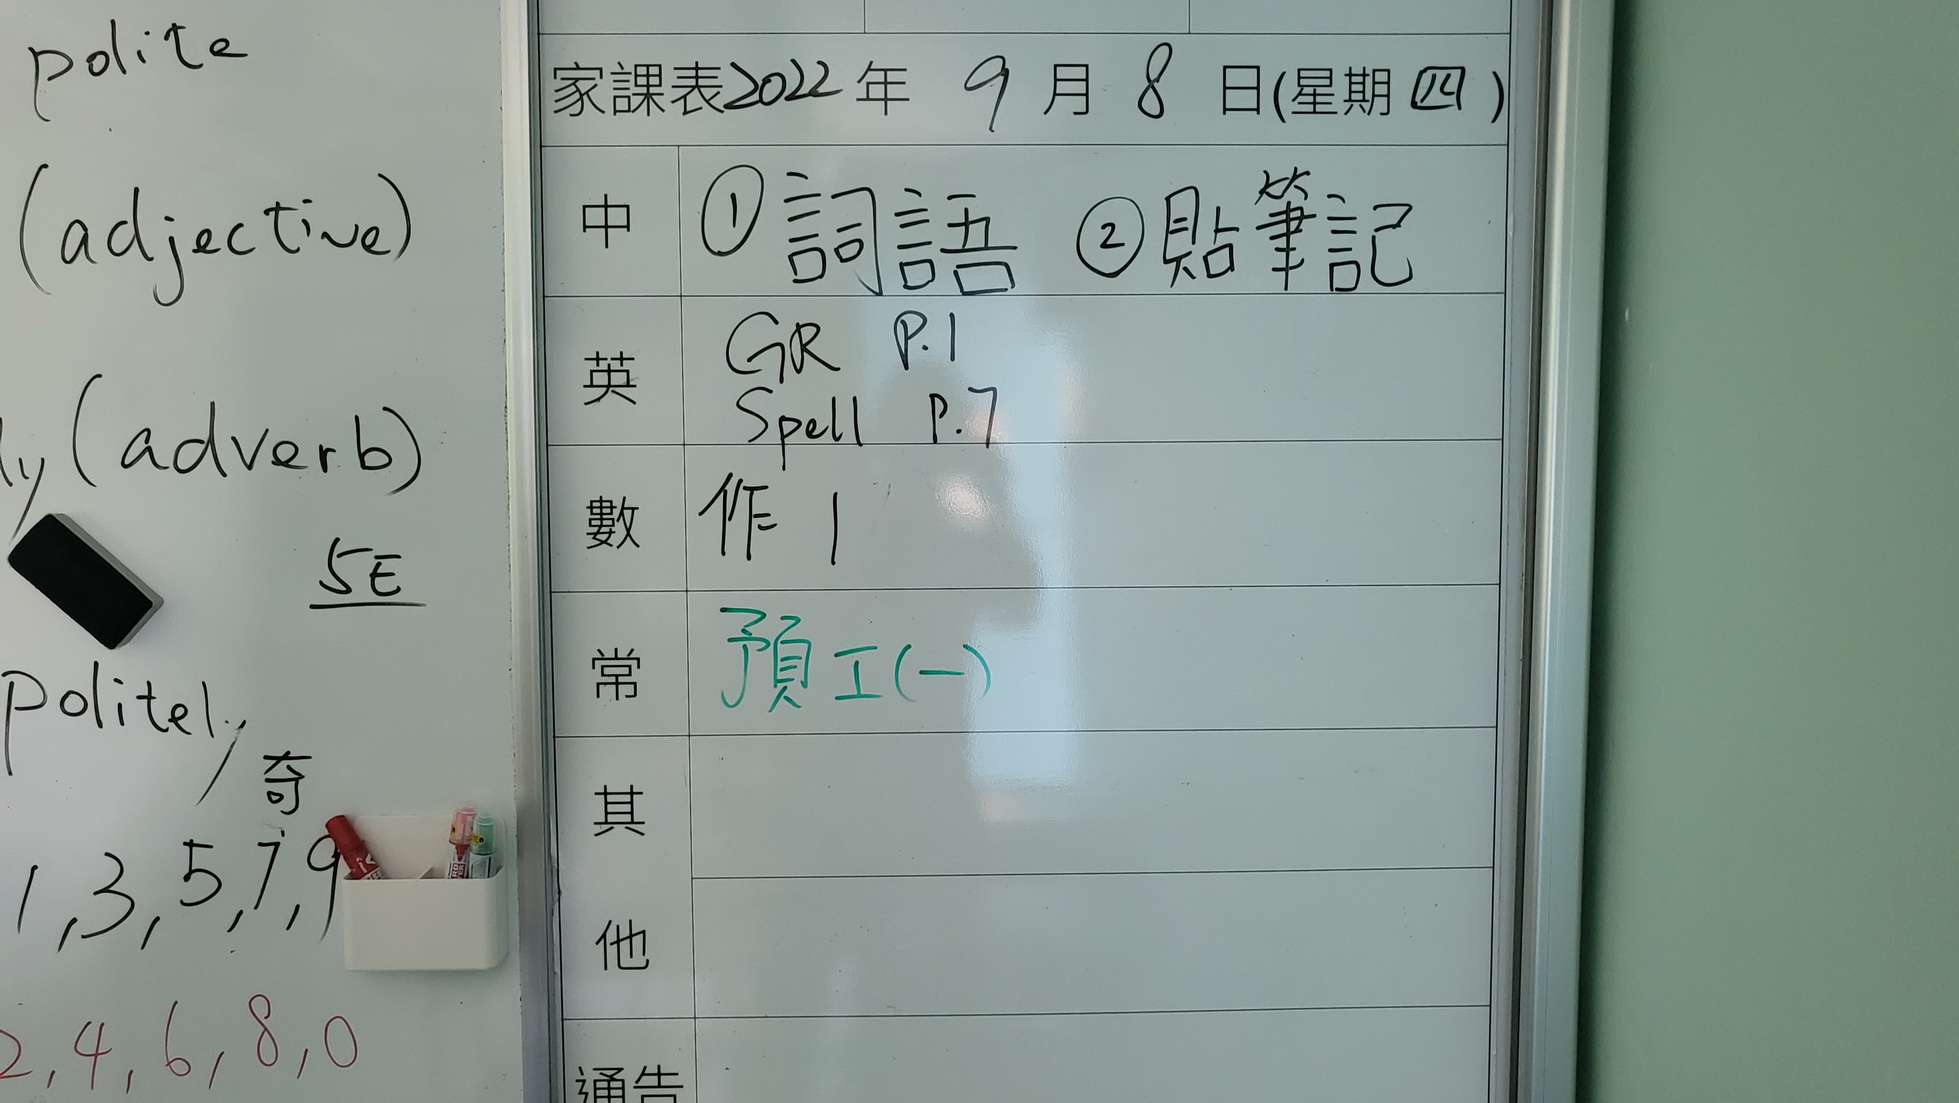 polite
(adjective)
ly (adverb)
5E
politely
奇
1,3,5,7,9
2,4,6,8,0
家課表2022年 9月8日(星期四)
中 ①詞語 ②貼筆記
英 GR P.1
Spell P.7
數 作 1
常 預工(一)
其
他
通告